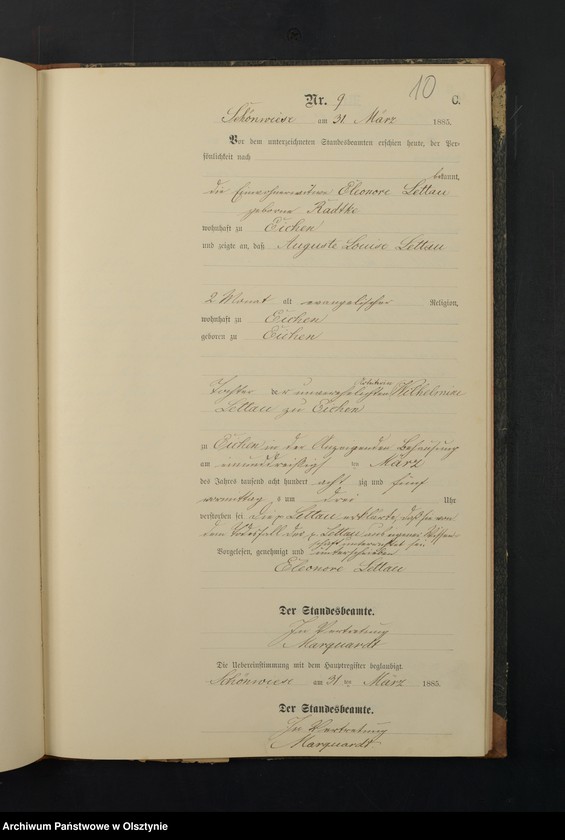 10
Nr. 9 C.
Schönwiese am 31 März 1885.
Vor dem unterzeichneten Standesbeamten erschien heute, der Per-
sönlichkeit nach
bekannt,
die Einwohnerwittwe Eleonore Lettau
geborne Radtke
wohnhaft zu Eichen
und zeigte an, daß Auguste Louise Lettau
2 Monat alt evangelischer Religion,
wohnhaft zu Eichen
geboren zu Eichen
Tochter der unverehelichten Wilhelmine
Lettau zu Eichen
zu Eichen in der Anzeigenden Behausung
am einunddreißigsten März
des Jahres tausend acht hundert acht zig und fünf
vormittags um drei Uhr
verstorben sei. Die p. Lettau erklärte, daß sie von
dem Todesfall der p. Lettau aus eigener Wissen-
schaft unterrichtet sei
Vorgelesen, genehmigt und unterschrieben
Eleonore Lettau
Der Standesbeamte.
In Vertretung
Marquardt
Die Uebereinstimmung mit dem Hauptregister beglaubigt.
Schönwiese am 31 ten März 1885.
Der Standesbeamte.
In Vertretung
Marquardt
Archiwum Państwowe w Olsztynie